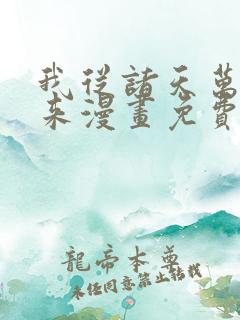 我從諸天萬
來漫畫免費
龍帝本尊
未经同意禁止转载